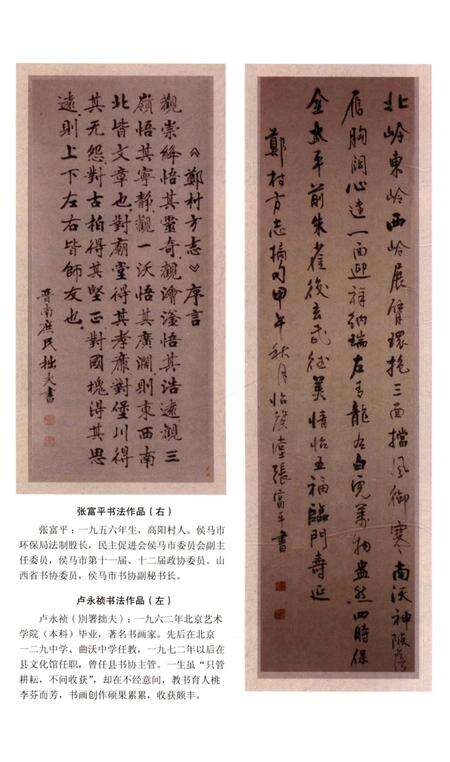 《鄭村方志》序言
觀崇絳悟其靈奇觀澮滏悟其浩遠觀三
嶺悟其寧靜觀一沃悟其廣濶則東西南
北皆文章也對廟堂得其孝廉對堡川得
其无怨對古柏得其堅正對國槐得其思
遠則上下左右皆師友也
晋南庶民拙夫書
北岭東岭西岭展臂環抱三面擋風御寒南沃神陂
胸闊心遠一面迎祥納瑞左青龍右白虎萬物盎然四時保
全太平前朱雀後玄武征美情怡五福臨門壽延
鄭村方志摘句甲午秋月怡 張富平書
张富平书法作品（右）
张富平：一九五六年生，高阳村人。侯马市
环保局法制股长，民主促进会侯马市委员会副主
任委员，侯马市第十一届、十二届政协委员。山
西省书协委员，侯马市书协副秘书长。
卢永祯书法作品（左）
卢永祯（别署拙夫）：一九六二年北京艺术
学院（本科）毕业，著名书画家。先后在北京
一二九中学、曲沃中学任教，一九七二年以后在
县文化馆任职，曾任县书协主管。一生虽“只管
耕耘，不问收获”，却在不经意间，教书育人桃
李芬而芳，书画创作硕果累累，收获颇丰。